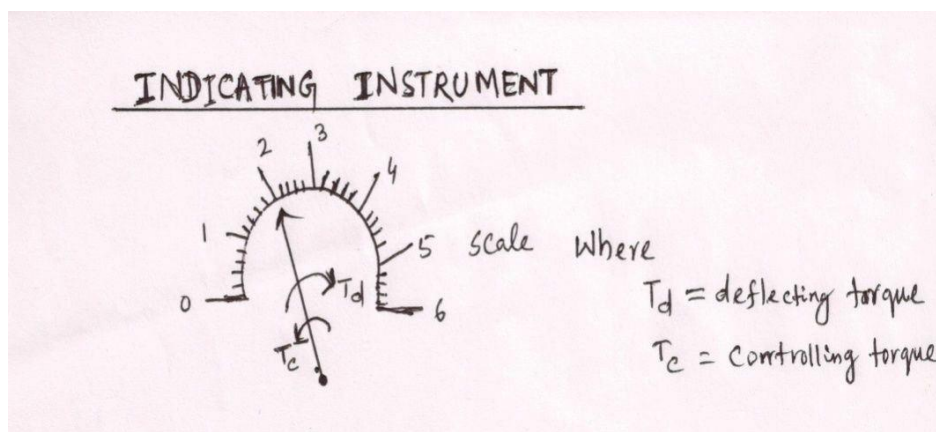 INDICATING INSTRUMENT
3
2
4
1
5 Scale Where
Td
Td = deflecting torque
0
6
Tc
Tc = Controlling torque